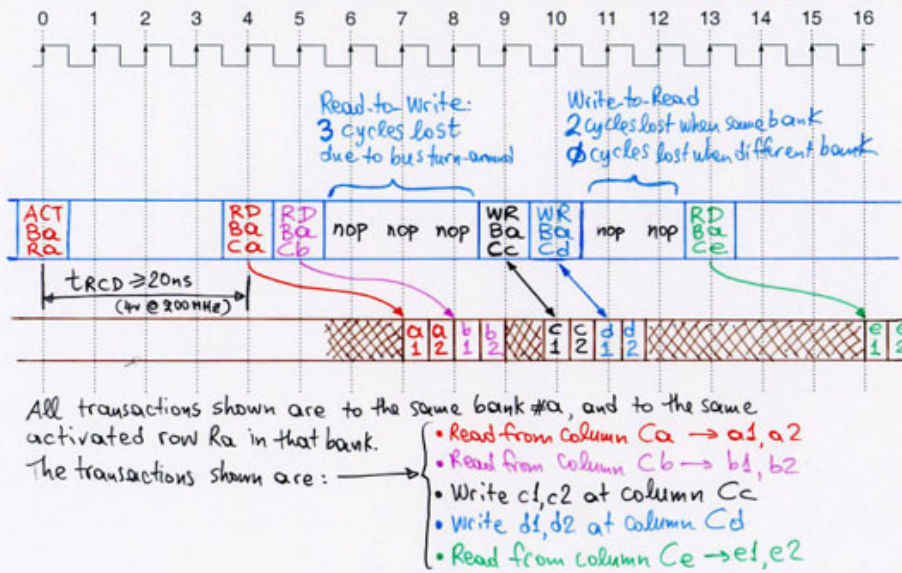 0 1 2 3 4 5 6 7 8 9 10 11 12 13 14 15 16
Read-to-Write:
3 cycles lost
due to bus turn-around
Write-to-Read
2 cycles lost when same bank
0 cycles lost when different bank
ACT Ba Ra
RD Ba Ca
RD Ba Cb
nop nop nop
WR Ba Cc
WR Ba Cd
nop nop
RD Ba Ce
tRCD ≥20ns
(4~ @ 200MHz)
a1 a2 b1 b2 c1 c2 d1 d2 e1 e2
All transactions shown are to the same bank #a, and to the same
activated row Ra in that bank.
The transactions shown are:
• Read from column Ca → a1, a2
• Read from column Cb → b1, b2
• Write c1, c2 at column Cc
• Write d1, d2 at column Cd
• Read from column Ce → e1, e2